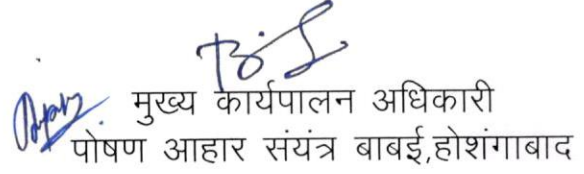 मुख्य कार्यपालन अधिकारी
पोषण आहार संयंत्र बाबई,होशंगाबाद